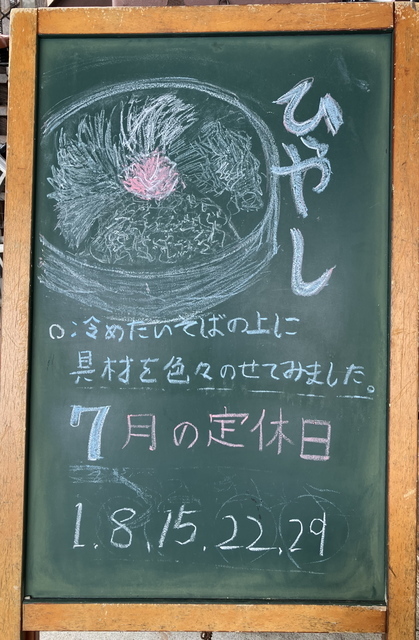 ひやし
○:冷めたいそばの上に
具材を色々のせてみました。
7月の定休日
1.8.15.22.29